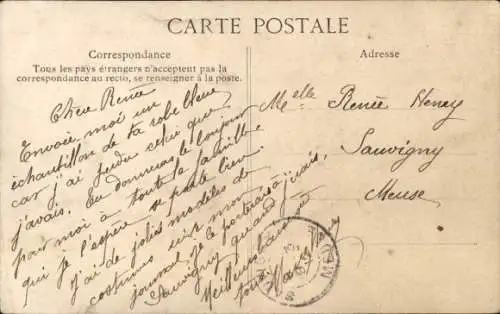 CARTE POSTALE
Correspondance
Tous les pays étrangers n'acceptent pas la
correspondance au recto, se renseigner à la poste.
Adresse
Chère Renée
Envoie moi un
échantillon de ta robe bleue
car j'ai perdu celui que
j'avais. Tu donneras le bonjour
pour moi à toute la famille
qui je l'espère se porte bien.
J'ai de jolis modèles de
costumes sur mon
journal je le porterais à
Sauvigny quand j'irais,
Meilleurs baisers
Melle Renée Henry
Sauvigny
Meuse